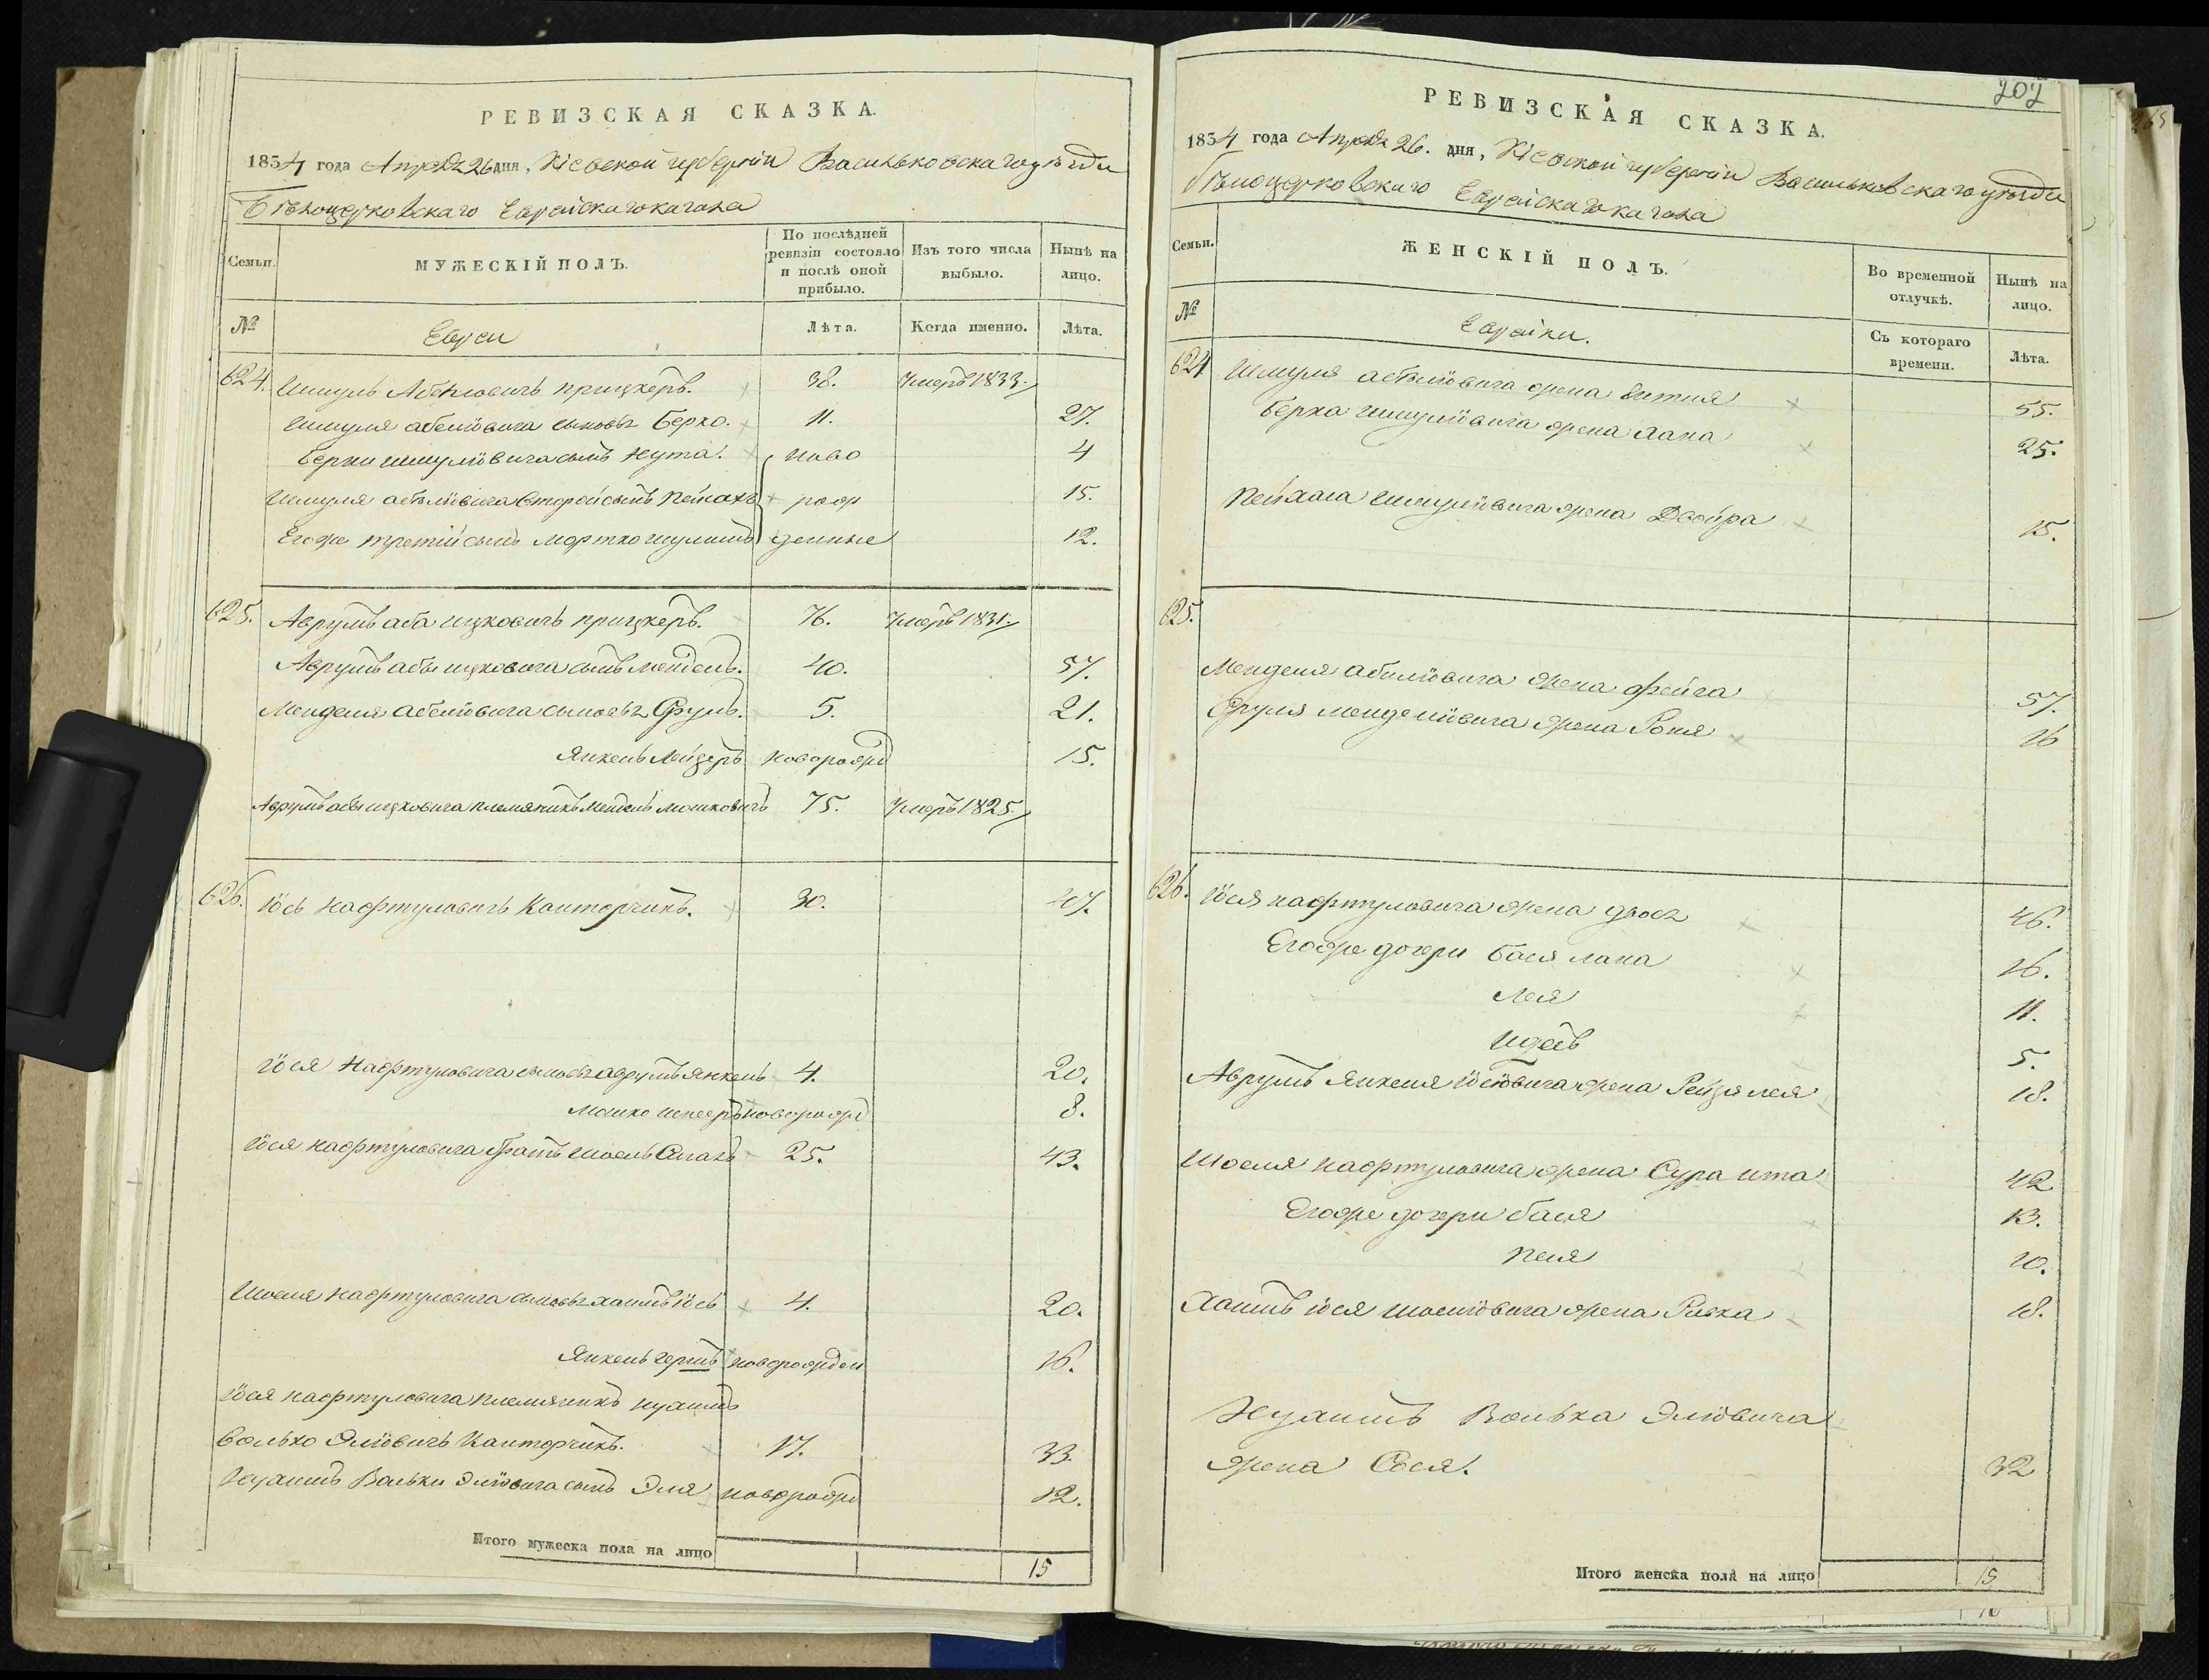 РЕВИЗСКАЯ СКАЗКА.
1834 года Апреля 26 дня, Кіевской губерніи Васильковскаго уѣзда
Бѣлоцерковскаго Еврейскаго кагала
Семьи.
МУЖЕСКІЙ ПОЛЪ.
По послѣдней ревизіи состояло и послѣ оной прибыло.
Изъ того числа выбыло.
Нынѣ на лицо.
№
Евреи
Лѣта.
Когда именно.
Лѣта.
624. Шмуль Абелювичъ прицкеръ. 38. Умеръ 1833.
Шмуля абелювича сыновья Берко. 11. 27.
Берки шмулювича сынъ Нута. ново 4
Шмуля абелювича второй сынъ Пейсахъ рож 15.
Егоже третій сынъ Мортко шулимъ денные 12.
625. Аврумъ аба ицковичъ прицкеръ. 76. Умеръ 1831.
Аврумъ абы ицковича сынъ мендель. 40. 57.
Менделя абелювича сыновья Сруль. 5. 21.
Янкель Лейзеръ новорожд 15.
Аврумъ абы ицковича племяникъ Мендель мошковичъ 75. Умеръ 1825.
626. Іось нафтуловичъ Канторчикъ. 30. 47.
Іося Нафтуловича сыновья аврумъ Янкель 4. 20.
мошко новорожд 8.
Іося нафтуловича братъ Шоель 25. 43.
Шоеля нафтуловича сыновья хаимъ іось 4. 20.
Янкель гершъ новорожден 16.
Іося нафтуловича племяникъ нухимъ
Волько Элювичъ Канторчикъ. 17. 33.
Нухимъ Вольки Элювича сынъ Эля новорожд 12.
Итого мужеска пола на лицо 15
202
РЕВИЗСКАЯ СКАЗКА.
1834 года Апреля 26. дня, Кіевской губерніи Васильковскаго уѣзда
Бѣлоцерковскаго Еврейскаго кагала
Семьи.
ЖЕНСКІЙ ПОЛЪ.
Во временной отлучкѣ.
Нынѣ на лицо.
№
Еврейки.
Съ котораго времени.
Лѣта.
624 Шмуля абелювича жена 55.
Берка шмулювича жена Хана 25.
Пейхаса шмулювича жена Двойра 15.
625.
Менделя абелювича жена фейга 57.
Сруля менделювича жена Рохля 16
626. Іося нафтуловича жена двося 46.
Егоже дочери бася лана 16.
Лея 11.
5.
Аврумъ Янкеля іосювича жена Рейзя лея 18.
Шоеля нафтуловича жена Сура ита 42
Егоже дочери бася 13.
Песя 10.
Хаимъ іося шоелювича жена Ривка 18.
Нухимъ Волька Элювича
жена Сося. 32
Итого женска пола на лицо 15